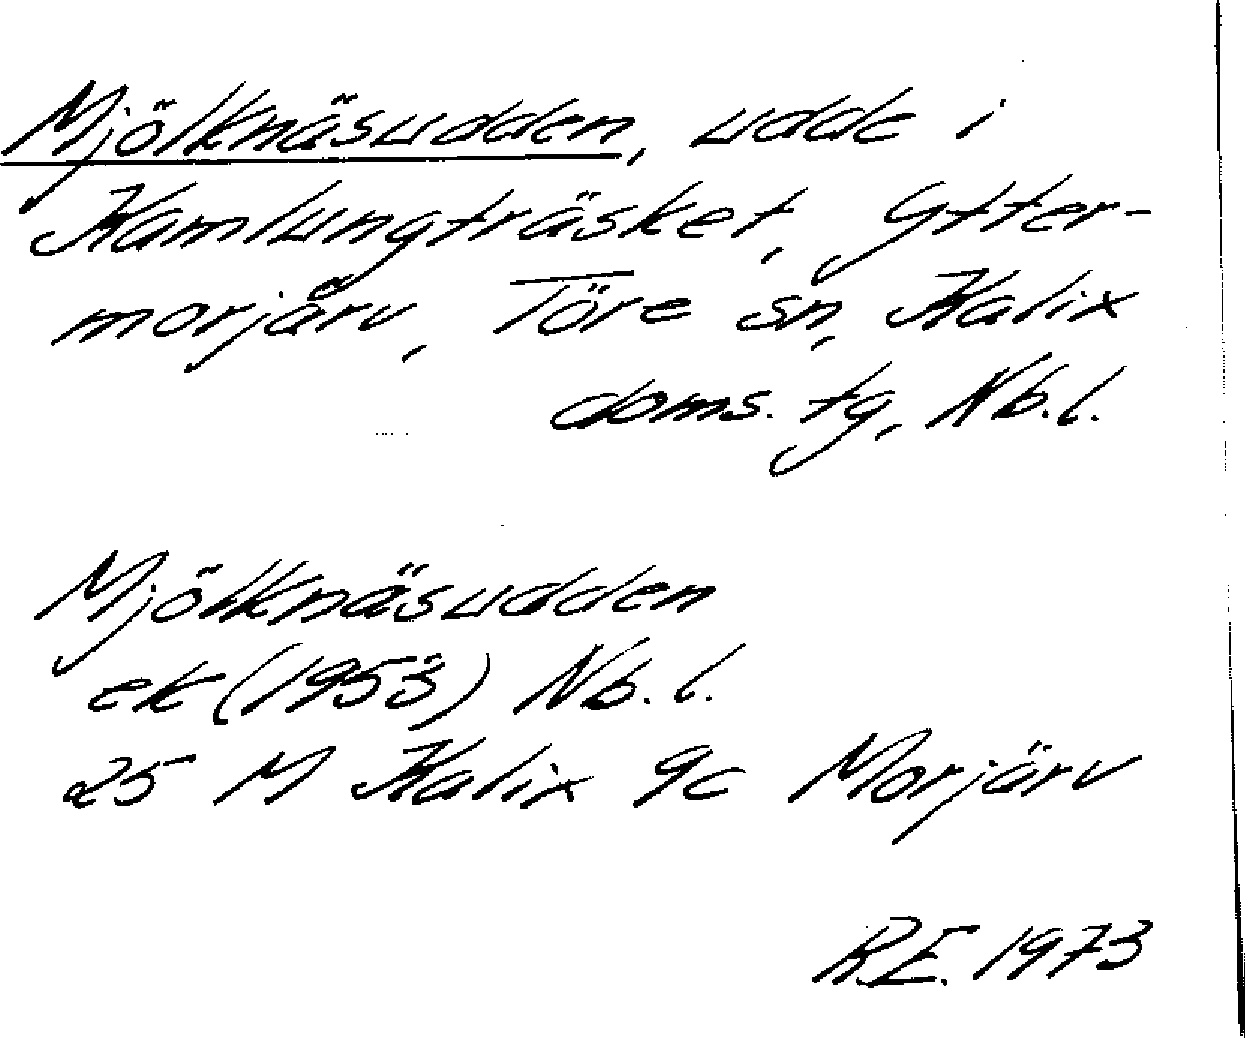 Mjölknäsudden, udde i
Kamlungträsket, Ytter-
morjärv, Töre sn, Kalix
doms. tg, Nb. l.
Mjölknäsudden
ek (1953) Nb. l.
25 M Kalix 9c Morjärv
R.E. 1973